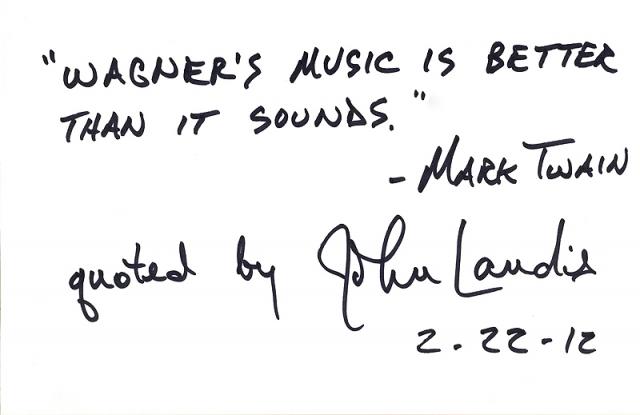 "WAGNER'S MUSIC IS BETTER
THAN IT SOUNDS."
- MARK TWAIN
quoted by John Landis
2-22-12